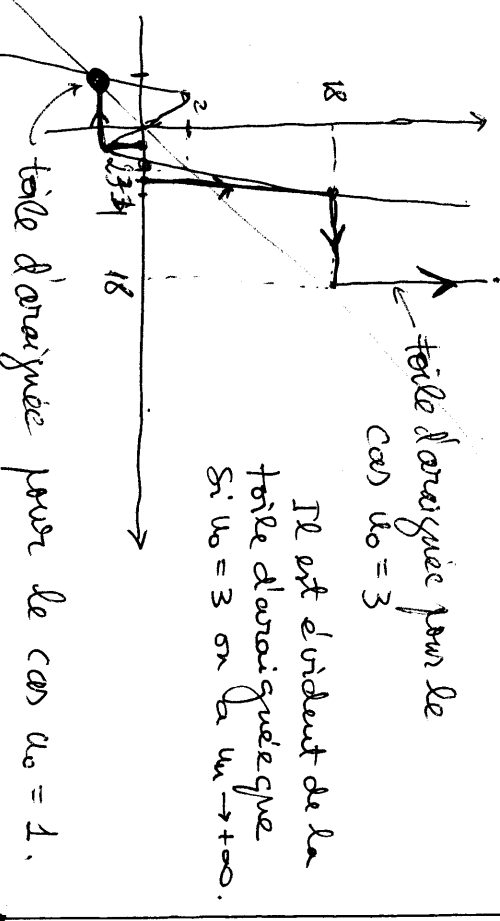 18
2
18
toile d'araignée pour le
cas u₀ = 3
Il est évident de la
toile d'araignée que
si u₀ = 3 on a uₙ → +∞.
toile d'araignée pour le cas u₀ = 1.